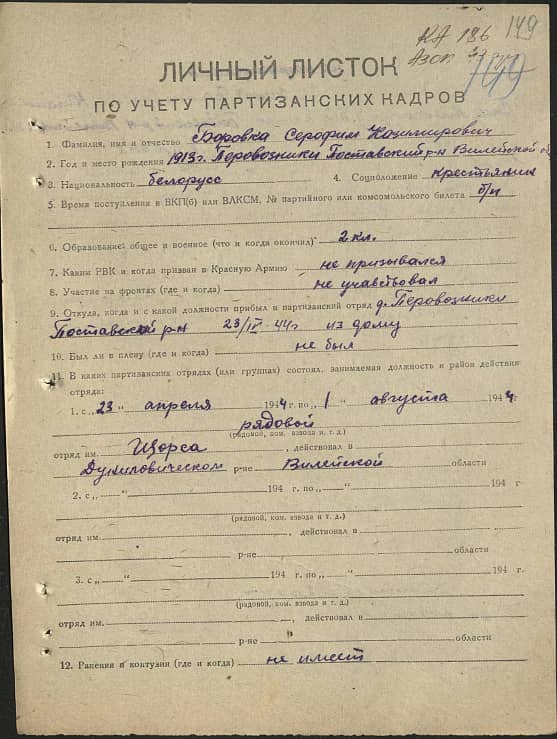 КА 186 149
ЛИЧНЫЙ ЛИСТОК
ПО УЧЕТУ ПАРТИЗАНСКИХ КАДРОВ
1. Фамилия, имя и отчество Боровка Серофим Казимирович
2. Год и место рождения 1913 г. Перовозники Поставский р-н Вилейской об
3. Национальность белорусс 4. Соцположение крестьянин
5. Время поступления в ВКП(б) или ВЛКСМ, № партийного или комсомольского билета б/п
6. Образование: общее и военное (что и когда окончил) 2 кл.
7. Каким РВК и когда призван в Красную Армию не призывался
8. Участие на фронтах (где и когда) не учавствовал
9. Откуда, когда и с какой должности прибыл в партизанский отряд д. Перовозники
Поставский р-н 23/IV 44 г из дому
10. Был ли в плену (где и когда) не был
11. В каких партизанских отрядах (или группах) состоял, занимаемая должность и район действия
отряда:
1. с „23" апреля 1944 г. по „1" августа 1944 г.
рядовой
(рядовой, ком. взвода и т. д.)
отряд им. Щорса, действовал в
Дуниловическом р-не Вилейской области
2. с „ " 194 г. по „ " 194 г.
(рядовой, ком. взвода и т. д.)
отряд им. , действовал в
р-не области
3. с „ " 194 г. по „ " 194 г.
(рядовой, ком. взвода и т. д.)
отряд им. , действовал в
р-не области
12. Ранения и контузии (где и когда) не имеет